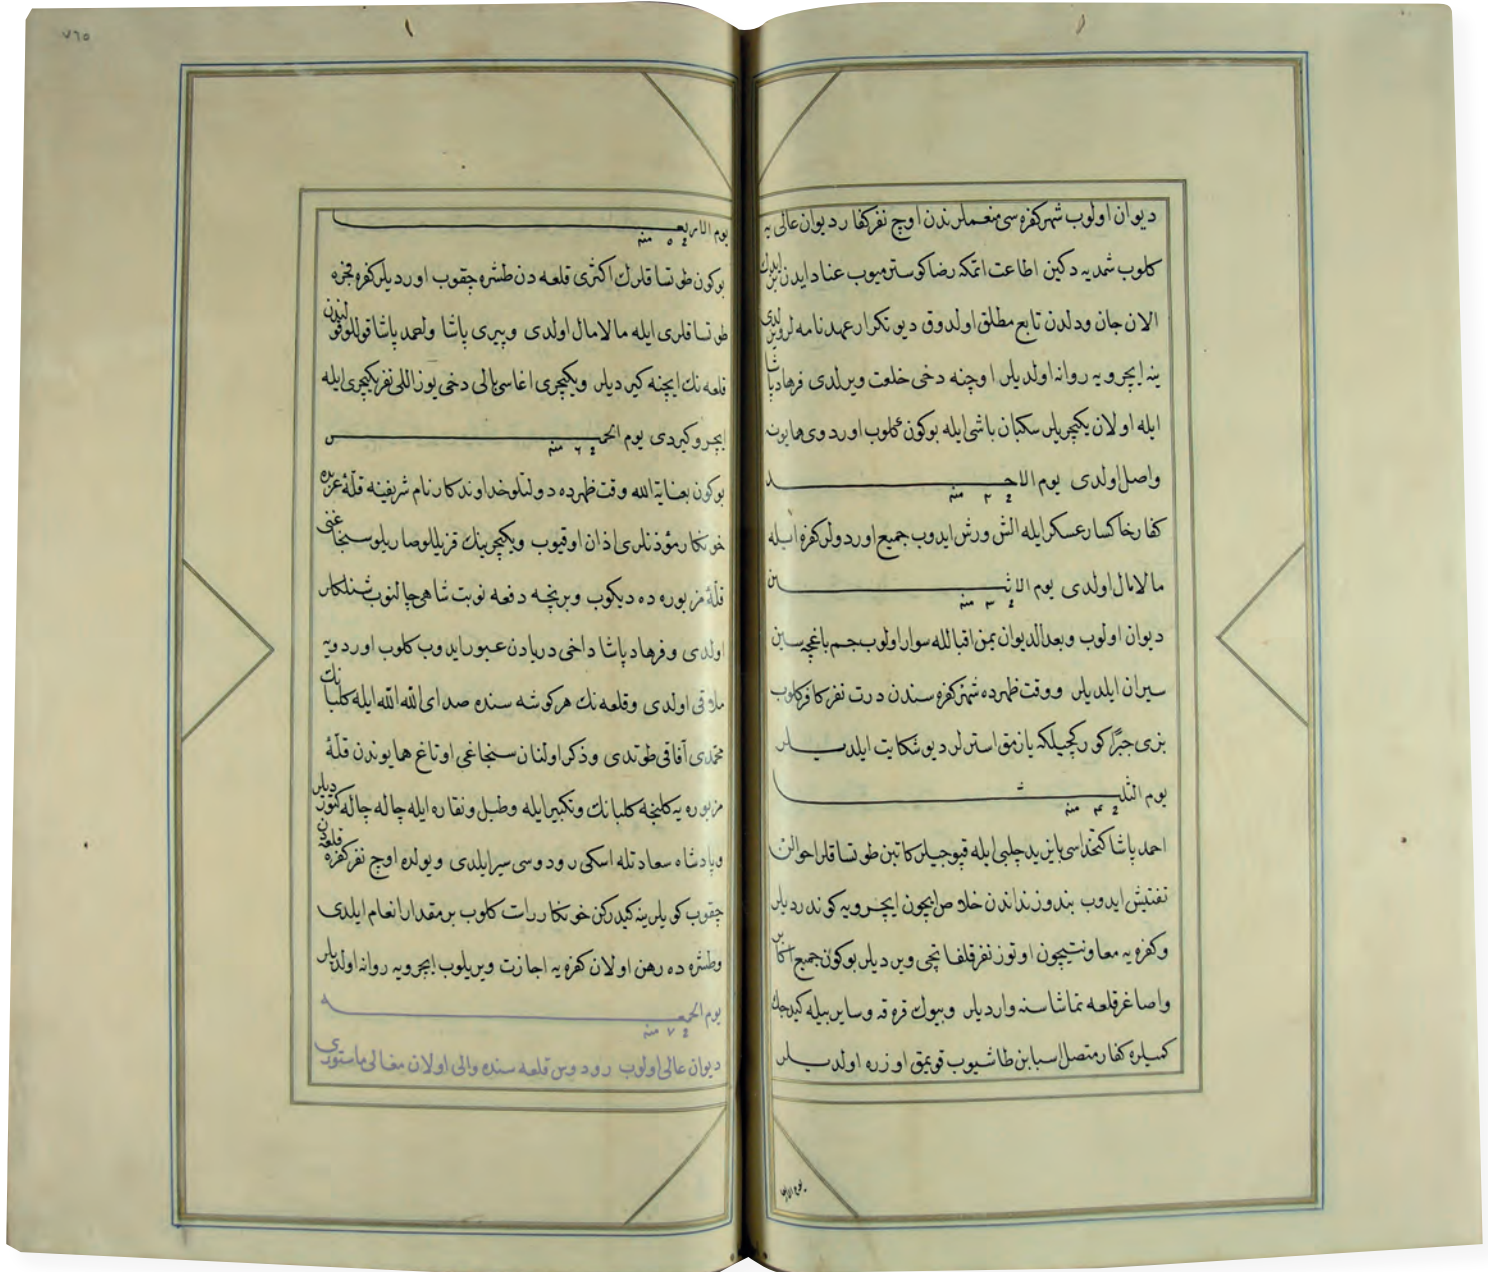 ديوان اولوب شهر كفره سی منعملرندن اوچ نفر كفار ديوان عالی يه
كلوب شمديه دكين اطاعت اتمكه رضا كوسترميوب عناد ايدن
الان جان ودلدن تابع مطلق اولدوق ديو تكرار عهدنامه لر ويرلدی
ينه ايچرويه روانه اولديلر اوچنه دخی خلعت ويرلدی فرهاد پاشا
ايله اولان يكيچريلر سكبان باشی ايله بوكون كلوب اوردوی همايونه
واصل اولدی يوم الاحد ٢ منه
كفار خاكسار عسكر ايله الش ورش ايدوب جميع اوردولر كفره ايله
مالامال اولدی يوم الاثنين ٣ منه
ديوان اولوب وبعد الديوان بمن اقبالله سوار اولوب جم باغچه سين
سيران ايلديلر ووقت ظهرده شهر كفره سندن درت نفر كافر كلوب
بزی جبرا كوريكچيلكه يازمق استرلر ديو شكايت ايلديلر
يوم الثلثا ٤ منه
احمد پاشا كتخداسی بايزيد چلبی ايله قپوجيلر كاتبين طوتساقلر احوالن
تفتيش ايدوب بند وزنداندن خلاص ايچون ايچرويه كوندرديلر
وكفره يه معاونتيچون اوتوز نفر قلفاتچی ويرديلر بوكون جميع اكابر
واصاغر قلعه تماشاسنه وارديلر وبيوك قره قه وسايرييله كيدجك
كميلره كفار متصل اسبابن طاشيوب قويمق اوزره اولديلر
يوم الاربعا
٧٦٥
يوم الاربعا ٥ منه
بوكون طوتساقلرك اكثری قلعه دن طشره چقوب اورديلر كفره فجره
طوتساقلری ايله مالامال اولدی وپيری پاشا واحمد پاشا قوللوقلرندن
قلعه نك ايچنه كيرديلر ويكيچری اغاسی بالی دخی يوز اللی نفر يكيچری ايله
ايچرو كيردی يوم الخميس ٦ منه
بوكون بعناية الله وقت ظهرده دولتلو خداوندكار نام شريفينه قلۀ مزبوره ده
خونكار مؤذنلری اذان اوقيوب ويكيچرينك قزيللو صاريلو سنجاغنی
قلۀ مزبوره ده ديكوب وبرنچه دفعه نوبت شاهی چالنوب شنلكلر
اولدی وفرهاد پاشا داخی دريادن عبور ايدوب كلوب اوردويه
ملاقی اولدی وقلعه نك هر كوشه سنده صدای الله الله ايله كلبانك
محمدی آفاقی طوتدی وذكر اولنان سنجاغی اوتاغ همايوندن قلۀ
مزبوره يه كلنجه كلبانك وتكبير ايله وطبل ونقاره ايله چاله چاله كتورديلر
وپادشاه سعادتله اسكی رودوسی سير ايلدی ويولده اوچ نفر كفره قلعه دن
چقوب كويلرينه كيدركن خونكار راست كلوب بر مقدار انعام ايلدی
وطشره ده رهن اولان كفره يه اجازت ويريلوب ايچرويه روانه اولديلر
يوم الجمعه ٧ منه
ديوان عالی اولوب رودوس قلعه سنده والی اولان مغالی ماستوری